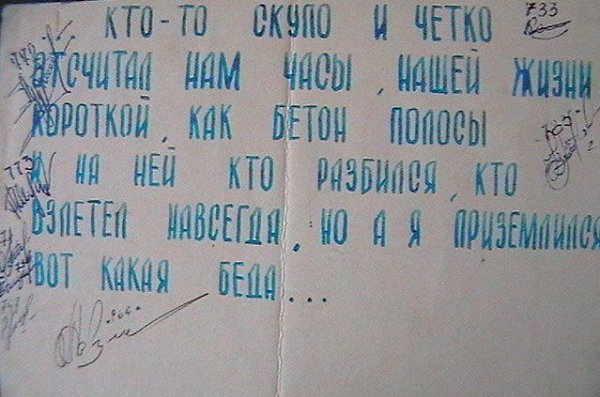 КТО-ТО СКУПО И ЧЕТКО
ОТСЧИТАЛ НАМ ЧАСЫ , НАШЕЙ ЖИЗНИ
КОРОТКОЙ , КАК БЕТОН ПОЛОСЫ
И НА НЕЙ КТО РАЗБИЛСЯ , КТО
ВЗЛЕТЕЛ НАВСЕГДА , НО А Я ПРИЗЕМЛИЛСЯ
ВОТ КАКАЯ БЕДА ...
733
773